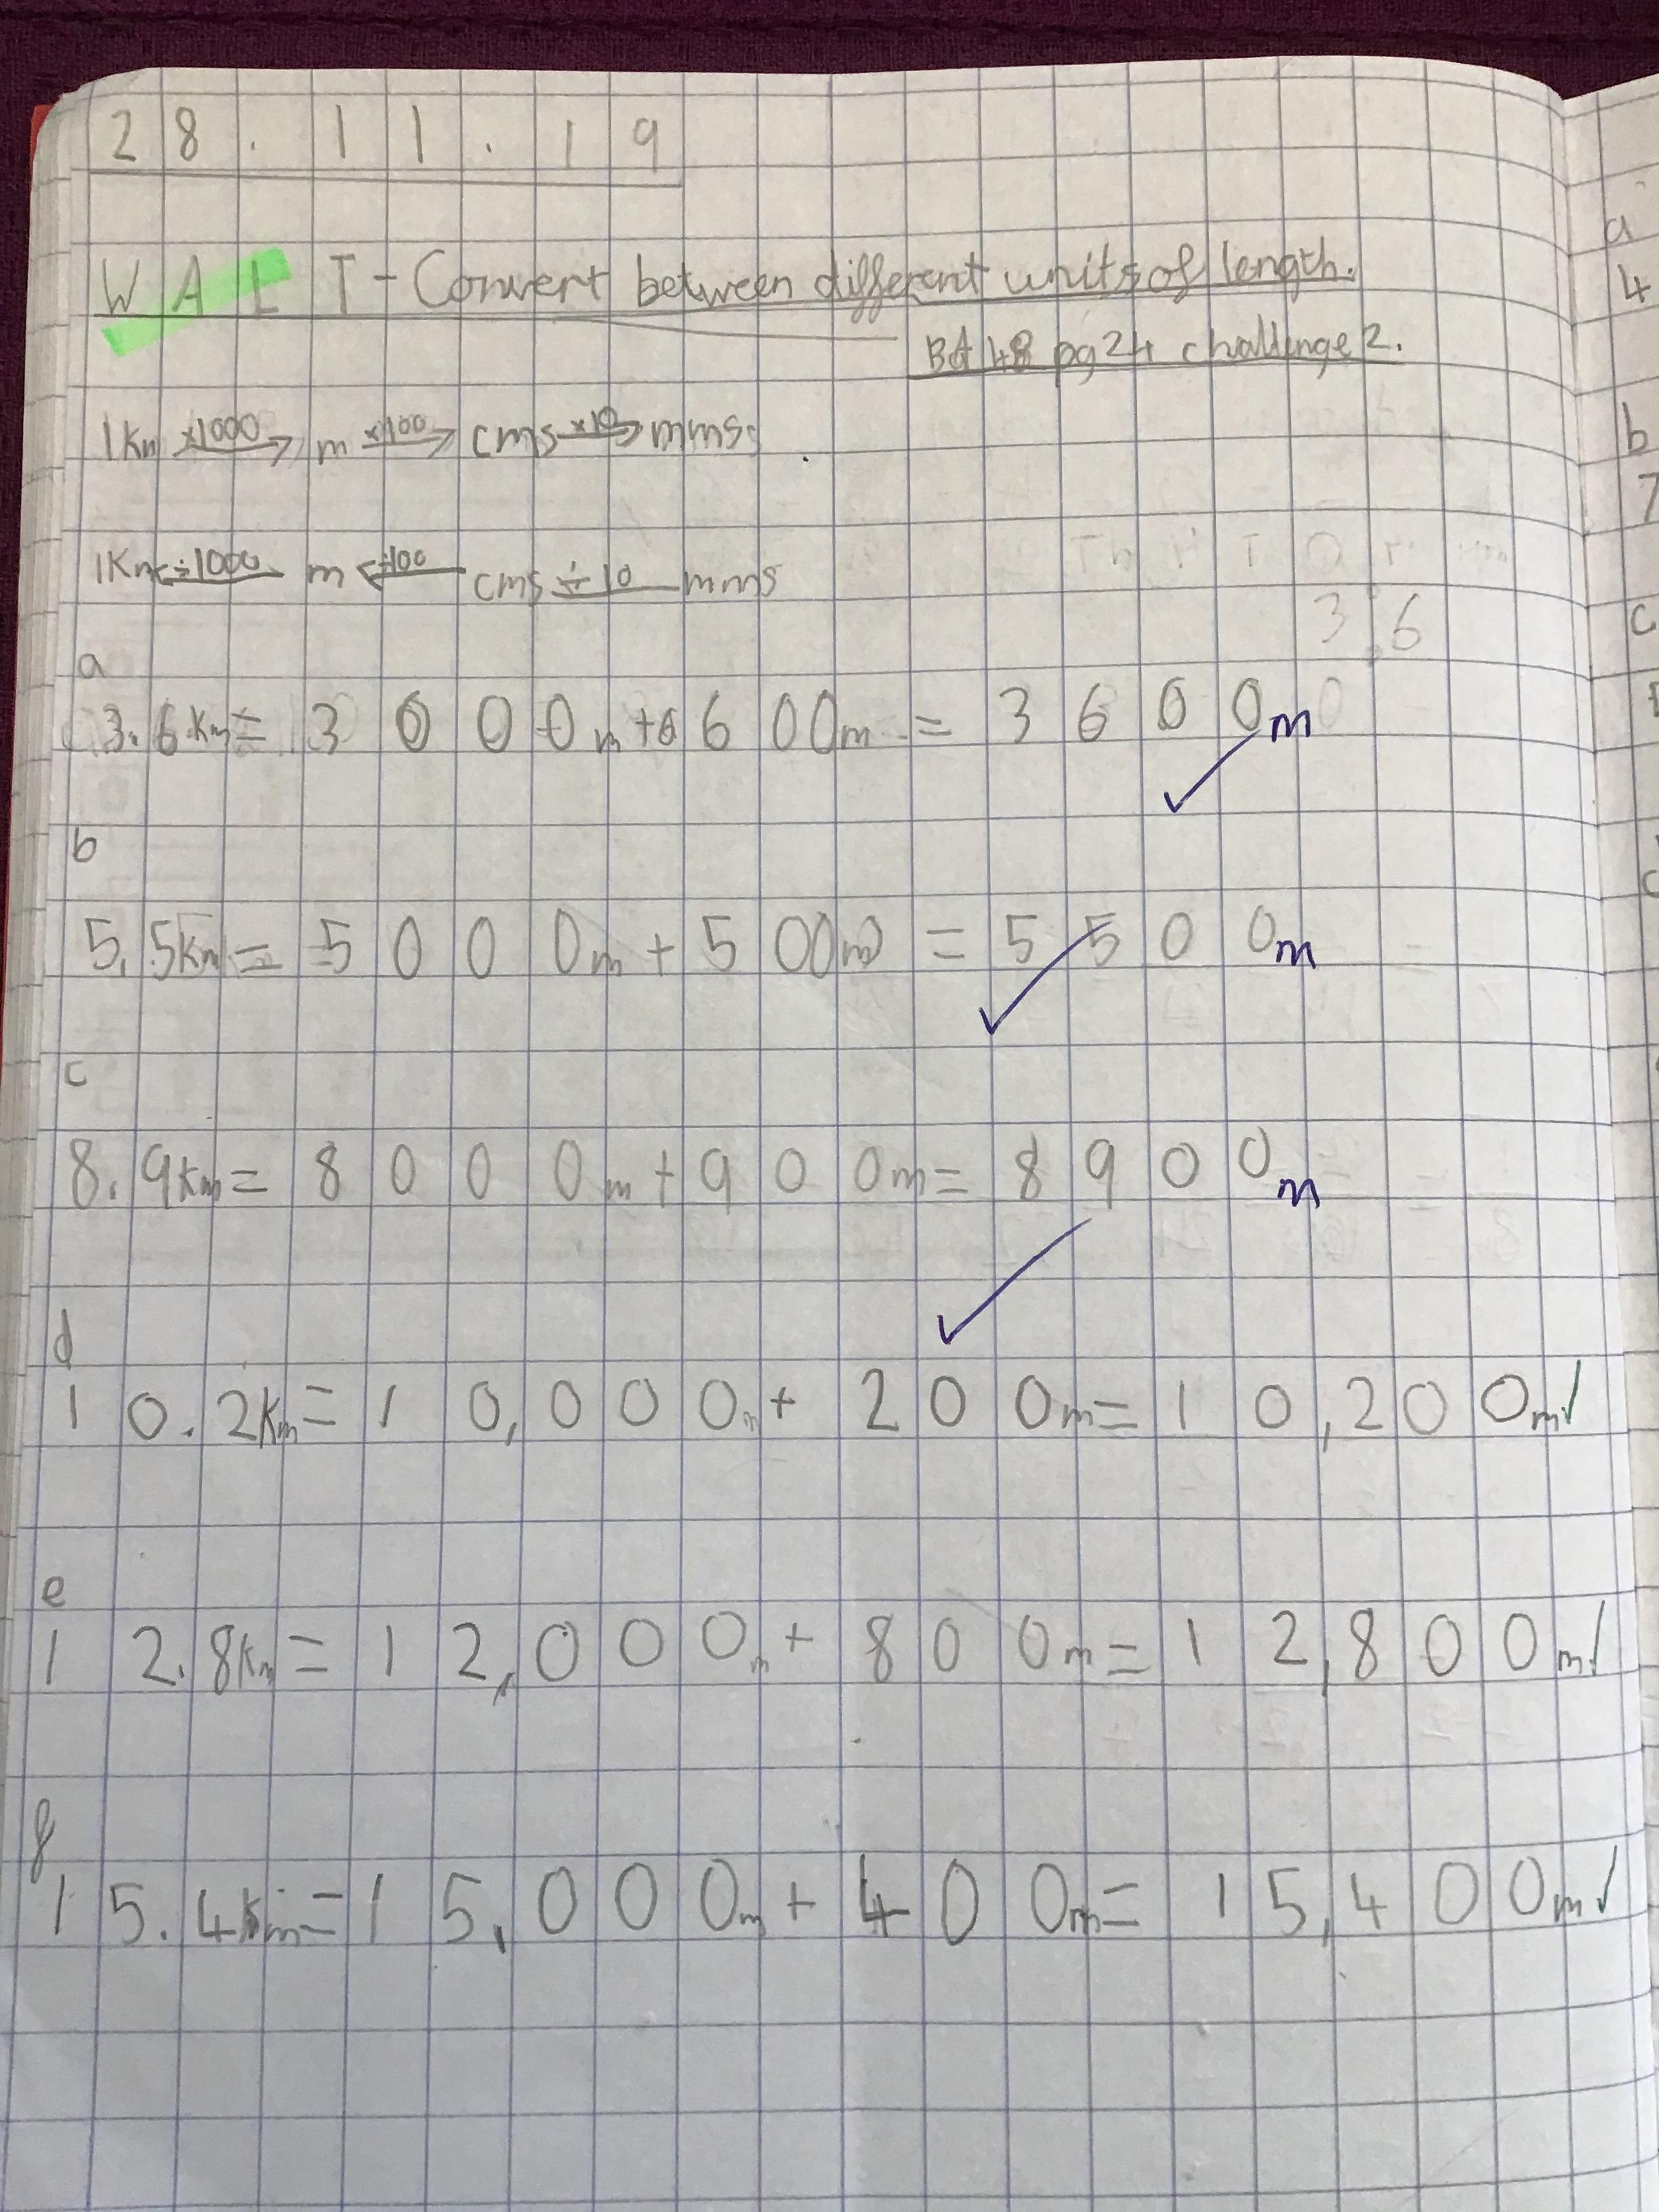 28.11.19
WALT - Convert between different units of length.
pg 24 challenge 2.
1Km ×1000 m ×100 cms ×10 mms
1Km ÷1000 m ÷100 cms ÷10 mms
Th H T O
3.6
a
3.6km = 3000m + 600m = 3600m
b
5.5km = 5000m + 500m = 5500m
c
8.9km = 8000m + 900m = 8900m
d
10.2km = 10,000m + 200m = 10,200m
e
12.8km = 12,000m + 800m = 12,800m
f
15.4km = 15,000m + 400m = 15,400m
a
4
b
7
c